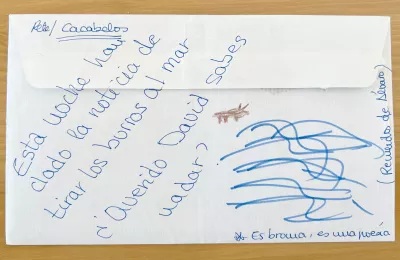 Rte/ Cacabelos
Esta noche han
dado la noticia de
tirar los burros al mar
¿Querido David sabes
nadar?
(Recuerdos de Álvaro)
* Es broma, es una poesía